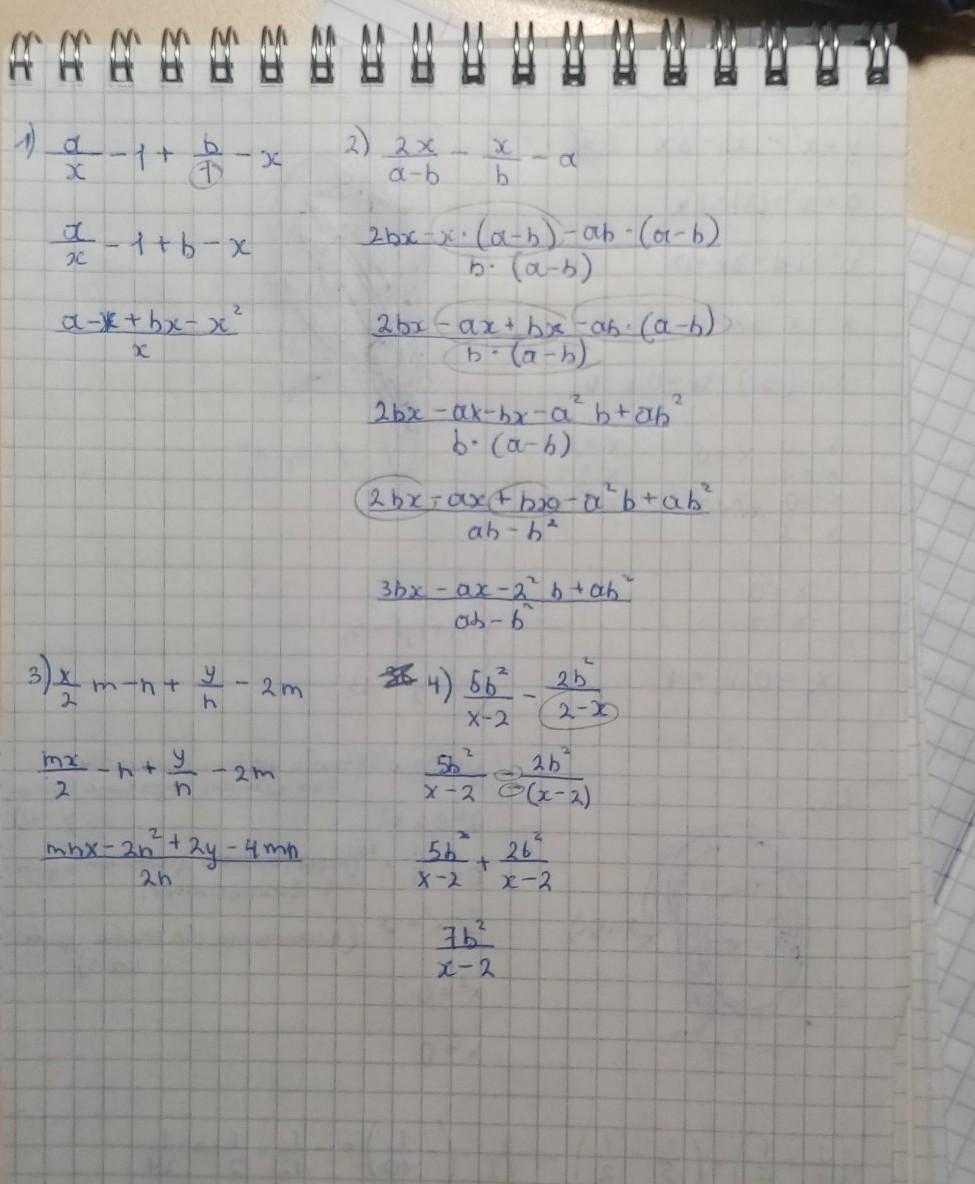 1) a/x - 1 + b/1 - x
a/x - 1 + b - x
(a - x + bx - x²)/x
2) 2x/(a-b) - x/b - a
(2bx - x·(a-b) - ab·(a-b))/(b·(a-b))
(2bx - ax + bx - ab·(a-b))/(b·(a-b))
(2bx - ax - bx - a²b + ab²)/(b·(a-b))
(2bx - ax + bx - a²b + ab²)/(ab - b²)
(3bx - ax - 2²b + ab²)/(ab - b²)
3) x/2 m - n + y/n - 2m
mx/2 - n + y/n - 2m
(mnx - 2n² + 2y - 4mn)/2n
4) 5b²/(x-2) - 2b²/(2-x)
5b²/(x-2) - 2b²/-(x-2)
5b²/(x-2) + 2b²/(x-2)
7b²/(x-2)